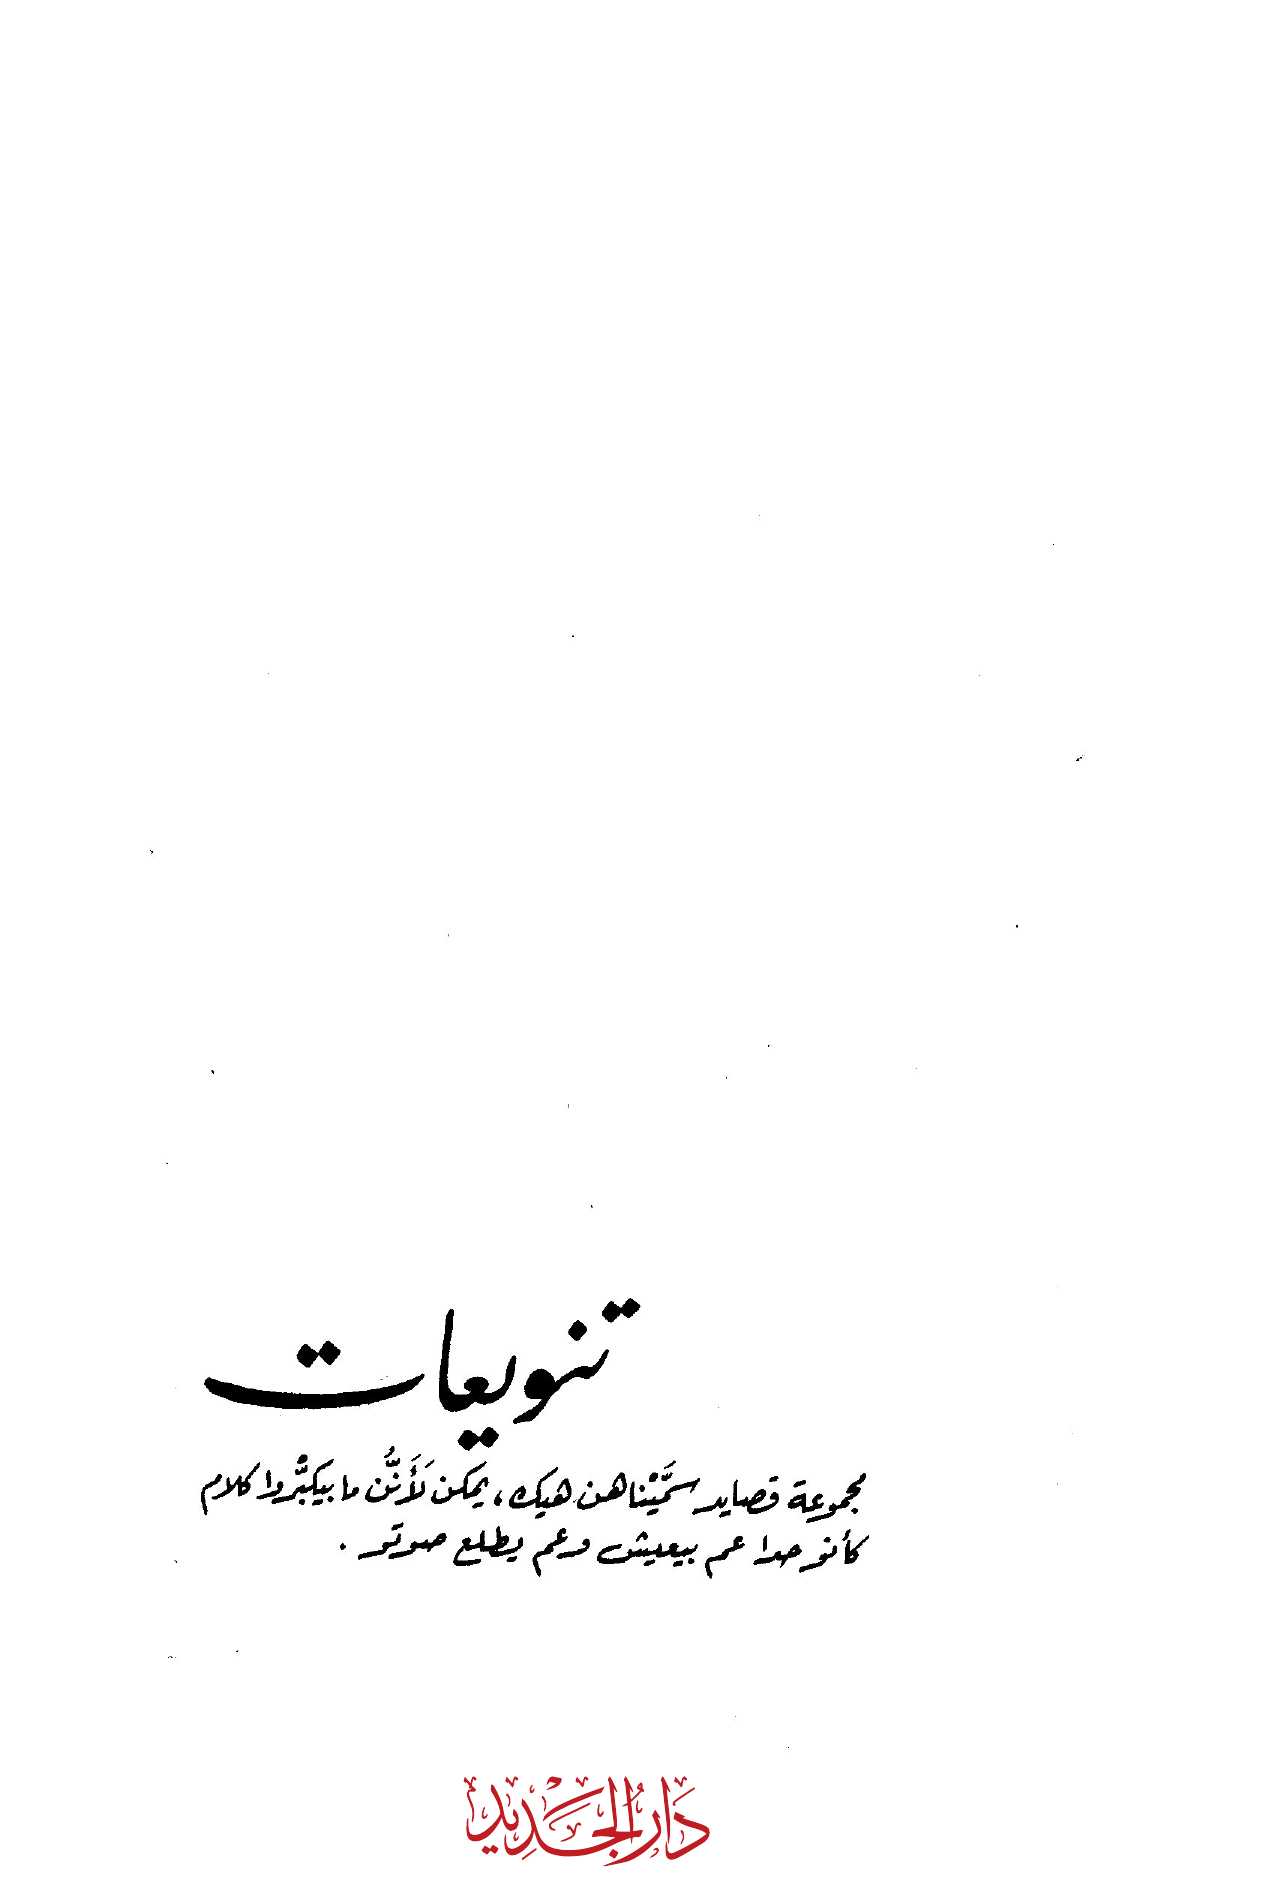 تنويعات
مجموعة قصايد سمَّيْناهن هيك، يمكن لَأَنُّن ما بيكبّْروا كلام
كأنو حدا عم بيعيش وعم يطلع صوتو .
دَارُ الجَدِيد